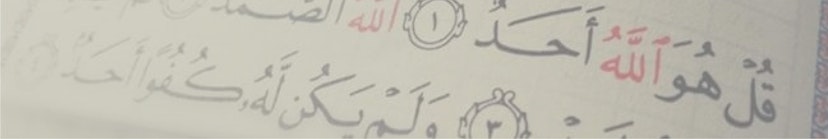 قُلْ هُوَ ٱللَّهُ أَحَدٌ ١ ٱللَّهُ ٱلصَّمَدُ
٣ وَلَمْ يَكُن لَّهُۥ كُفُوًا أَحَدٌۢ